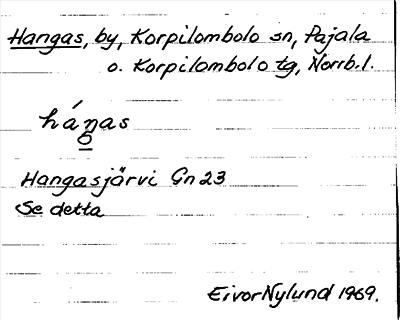 Hangas, by, Korpilombolo sn, Pajala
o. Korpilombolo tg, Norrb. l.
háŋas
Hangasjärvi Gn 23
Se detta
Eivor Nylund 1969.